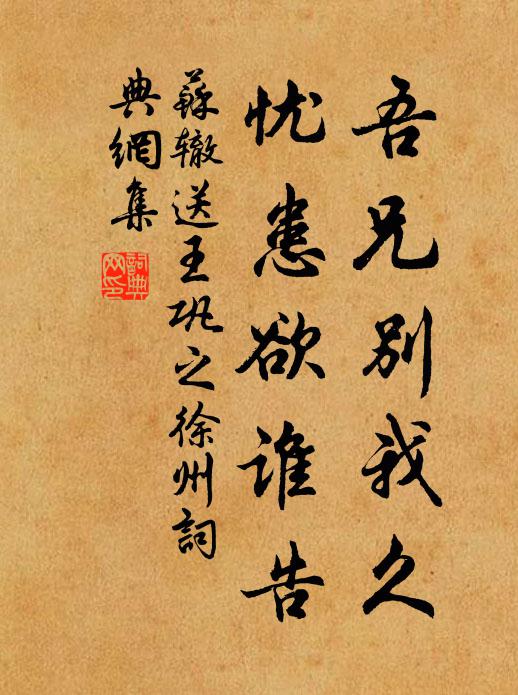 吾兄别我久
忧患欲谁告
蘇辙送王巩之徐州詞
典網集
詞典網印